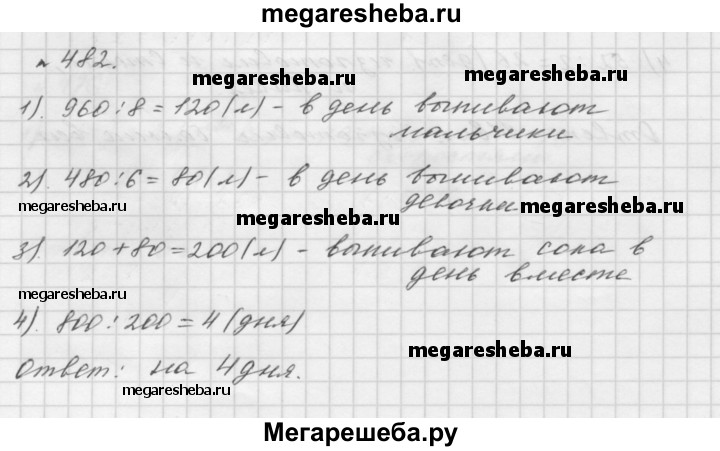 megaresheba.ru
№ 482.
megaresheba.ru
megaresheba.ru
1). 960:8=120(л) - в день выпивают
мальчики
2). 480:6=80(л) - в день выпивают
девочки
megaresheba.ru
megaresheba.ru
megaresheba.ru
3). 120+80=200(л) - выпивают сока в
день вместе
megaresheba.ru
4). 800:200=4(дня)
megaresheba.ru
Ответ: на 4 дня.
megaresheba.ru
Мегарешеба.ру